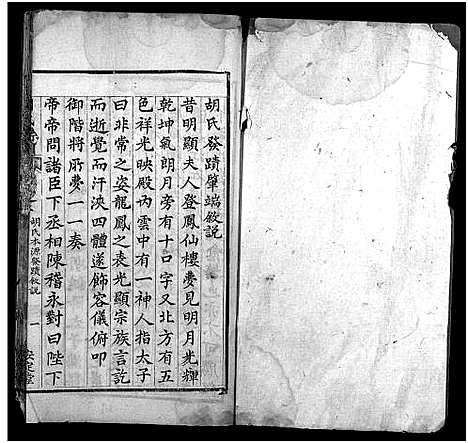 胡氏發蹟肇端敘說
昔明顯夫人登鳳仙樓夢見明月光輝
乾坤氣朗月旁有十口字又北方有五
色祥光映殿內雲中有一神人指太子
曰非常之姿龍鳳之表光顯宗族言訖
而逝覺而汗浹四體遂飾容儀俯叩
御階將所夢一一奏
帝帝問諸臣下丞相陳稽永對曰陛下
胡氏本源發蹟敘說
一
安定堂